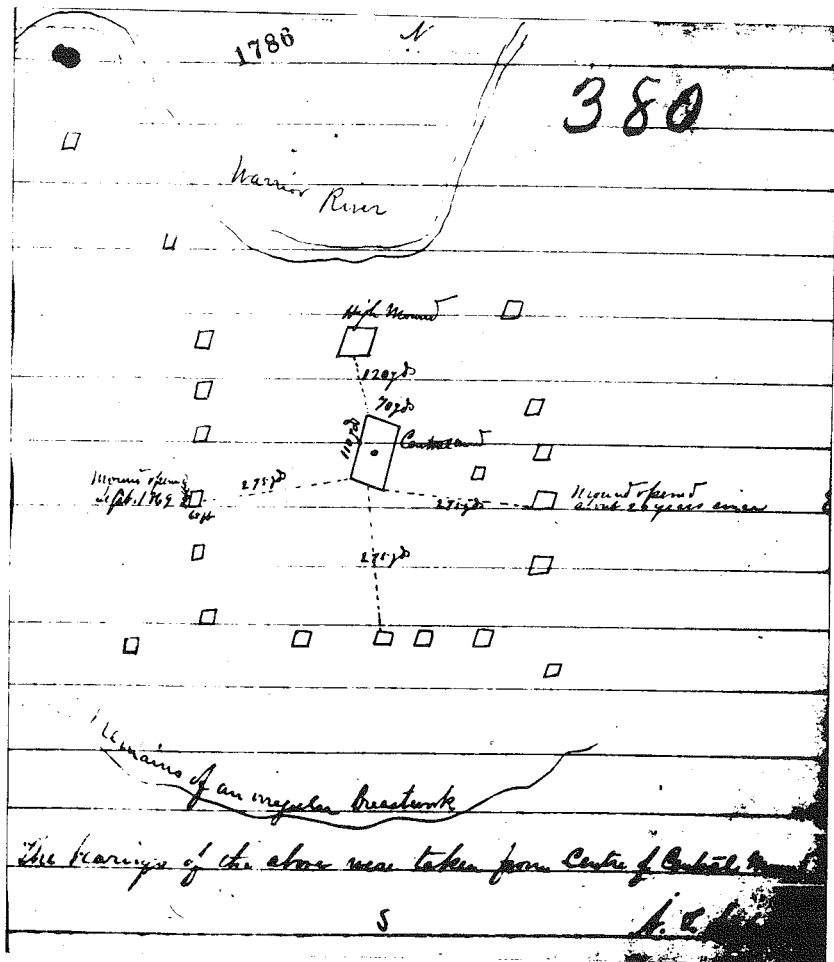 1786
N
380
Warrior
River
High Mound
120yds
70yds
110yds
Central mound
Mound opened
in Feb. 1869
60 ft
275yds
275yds
Mound opened
about 20 years since
275yds
Remains of an irregular breastwork
The bearings of the above were taken from Centre of Central Mound
S